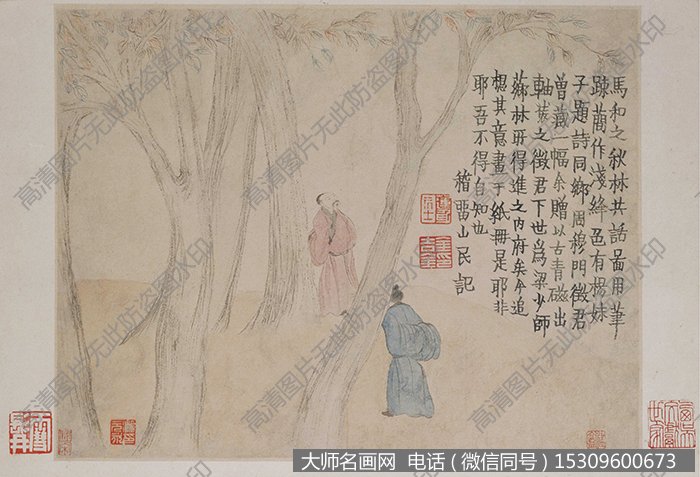 馬和之秋林共話啚用筆
踈蕳作淺絳色有楊妹
子題詩同鄉周穆門徵君
曽藏一幅余贈以古青磁出
軸裝之徵君下世爲梁少師
薌林所得進之內府矣今追
想其意畫于紙冊是耶非
耶吾不得自知也
稽畱山民記
高清图片无此防盗图水印
大师名画网 电话（微信同号）15309600673